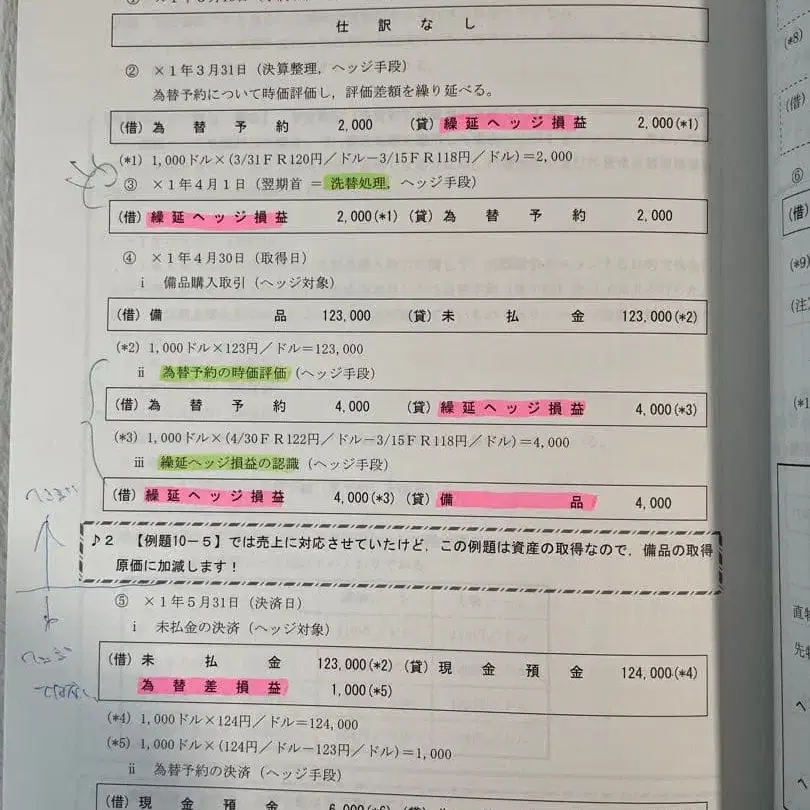 仕訳なし
② ×1年3月31日（決算整理，ヘッジ手段）
為替予約について時価評価し，評価差額を繰り延べる。
（借）為替予約 2,000 （貸）繰延ヘッジ損益 2,000(*1)
(*1) 1,000ドル×(3/31ＦＲ120円／ドル－3/15ＦＲ118円／ドル)＝2,000
③ ×1年4月1日（翌期首 ＝ 洗替処理，ヘッジ手段）
（借）繰延ヘッジ損益 2,000(*1) （貸）為替予約 2,000
④ ×1年4月30日（取得日）
ⅰ 備品購入取引（ヘッジ対象）
（借）備品 123,000 （貸）未払金 123,000(*2)
(*2) 1,000ドル×123円／ドル＝123,000
ⅱ 為替予約の時価評価（ヘッジ手段）
（借）為替予約 4,000 （貸）繰延ヘッジ損益 4,000(*3)
(*3) 1,000ドル×(4/30ＦＲ122円／ドル－3/15ＦＲ118円／ドル)＝4,000
ⅲ 繰延ヘッジ損益の認識（ヘッジ手段）
（借）繰延ヘッジ損益 4,000(*3) （貸）備品 4,000
♪2 【例題10－5】では売上に対応させていたけど，この例題は資産の取得なので，備品の取得
原価に加減します！
⑤ ×1年5月31日（決済日）
ⅰ 未払金の決済（ヘッジ対象）
（借）未払金 123,000(*2) （貸）現金預金 124,000(*4)
為替差損益 1,000(*5)
(*4) 1,000ドル×124円／ドル＝124,000
(*5) 1,000ドル×(124円／ドル－123円／ドル)＝1,000
ⅱ 為替予約の決済（ヘッジ手段）
（借）現金預金
(*8)
（借）
⑥
（借）
(*9)
（注
(*1